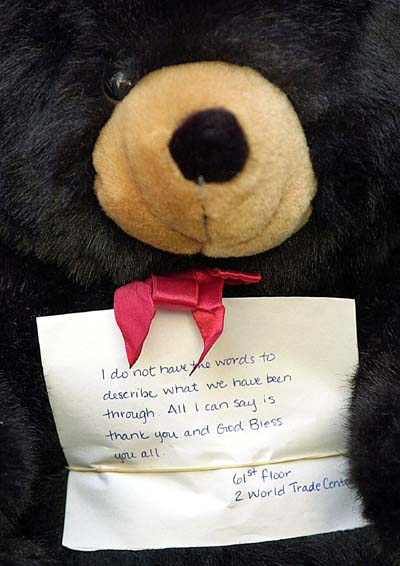 I do not have the words to
describe what we have been
through. All I can say is
thank you and God Bless
you all.
61st floor
2 World Trade